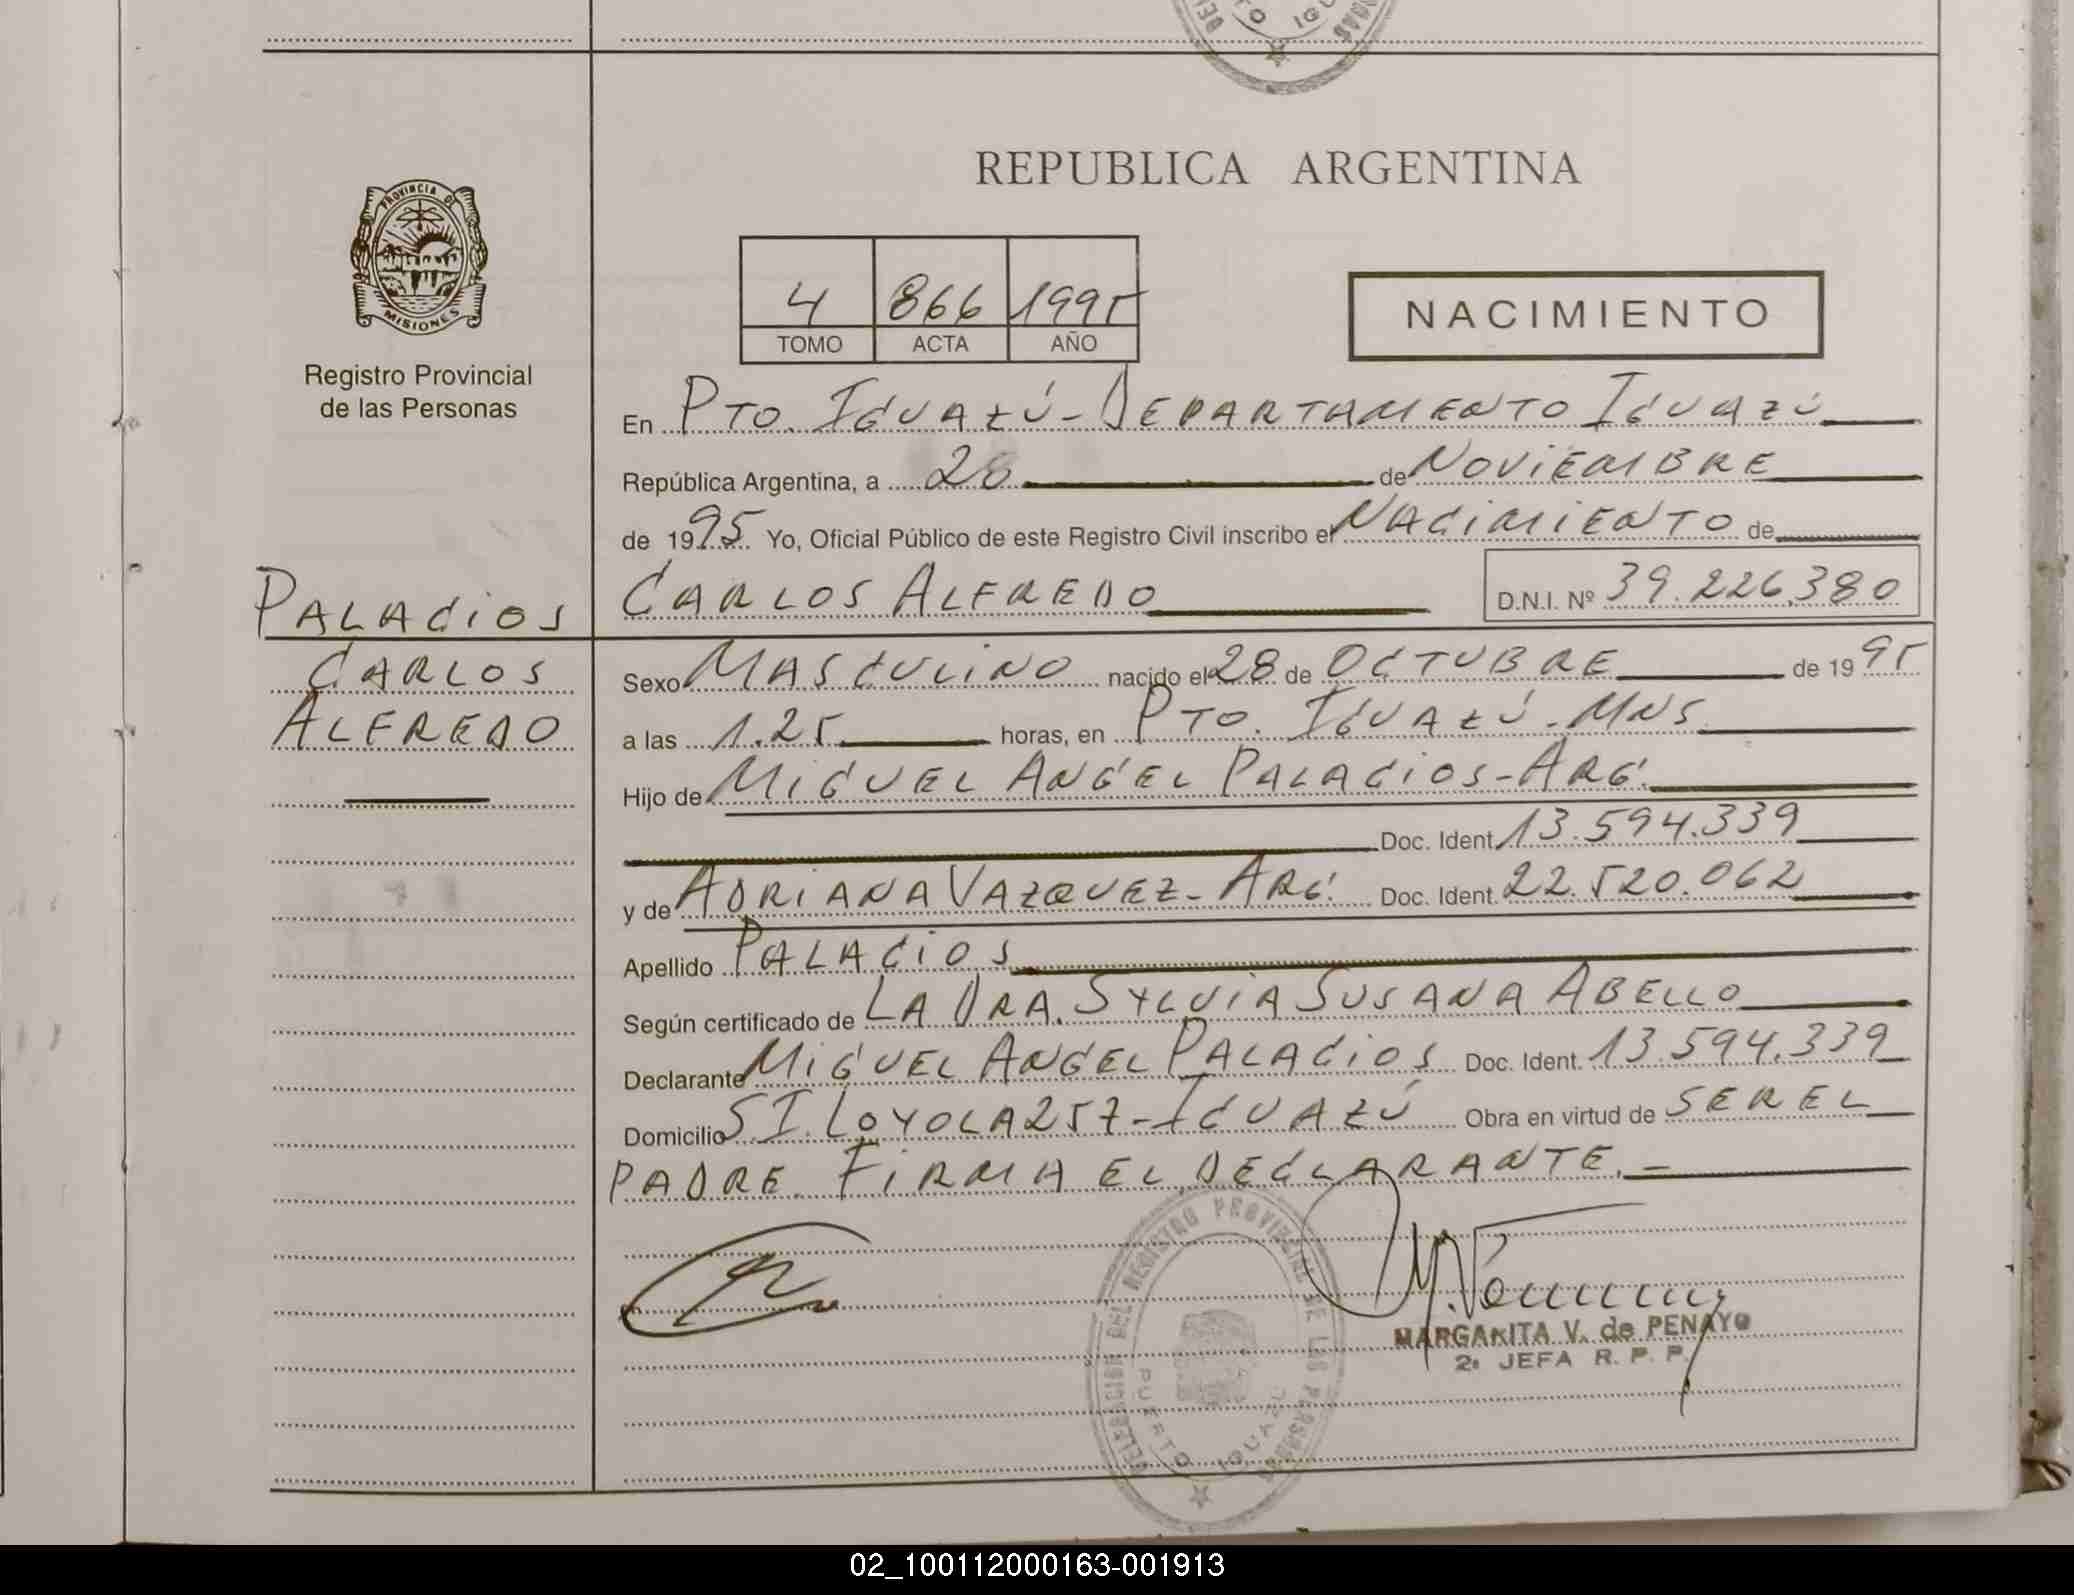 REPUBLICA ARGENTINA
PROVINCIA DE
MISIONES
Registro Provincial
de las Personas
4 866 1995
TOMO ACTA AÑO
NACIMIENTO
En PTO. IGUAZÚ - DEPARTAMENTO IGUAZÚ
República Argentina, a 28 de NOVIEMBRE
de 1995. Yo, Oficial Público de este Registro Civil inscribo el NACIMIENTO de
CARLOS ALFREDO D.N.I. Nº 39.226.380
PALACIOS
CARLOS
ALFREDO
Sexo MASCULINO nacido el 28 de OCTUBRE de 1995
a las 1.25 horas, en PTO. IGUAZÚ - MNS.
Hijo de MIGUEL ANGEL PALACIOS - ARG.
Doc. Ident. 13.594.339
y de ADRIANA VAZQUEZ - ARG. Doc. Ident. 22.520.062
Apellido PALACIOS
Según certificado de LA DRA. SYLVIA SUSANA ABELLO
Declarante MIGUEL ANGEL PALACIOS Doc. Ident. 13.594.339
Domicilio S.I. LOYOLA 257 - IGUAZÚ Obra en virtud de SER EL
PADRE. FIRMA EL DECLARANTE. -
DELEGACION DEL REGISTRO PROVINCIAL DE LAS PERSONAS
PUERTO IGUAZU
MARGARITA V. de PENAYO
2ª JEFA R. P. P.
02_100112000163-001913